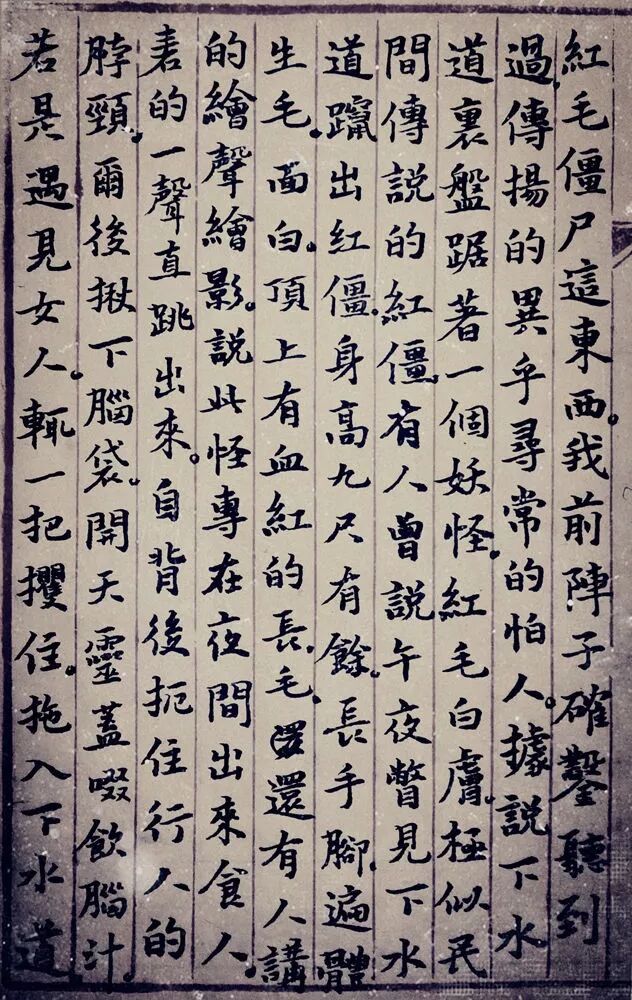 紅毛僵尸這東西。我前陣子確鑿聽到
過。傳揚的異乎尋常的怕人。據說下水
道裏盤踞著一個妖怪。紅毛白膚。極似民
間傳說的紅僵。有人曾說午夜瞥見下水
道躥出紅僵。身高九尺有餘。長手腳。遍體
生毛。面白。頂上有血紅的長毛。還有人講
的繪聲繪影。說此怪專在夜間出來食人。
砉的一聲直跳出來。自背後扼住行人的
脖頸。爾後揪下腦袋。開天靈蓋啜飲腦汁。
若是遇見女人。輒一把攫住。拖入下水道。